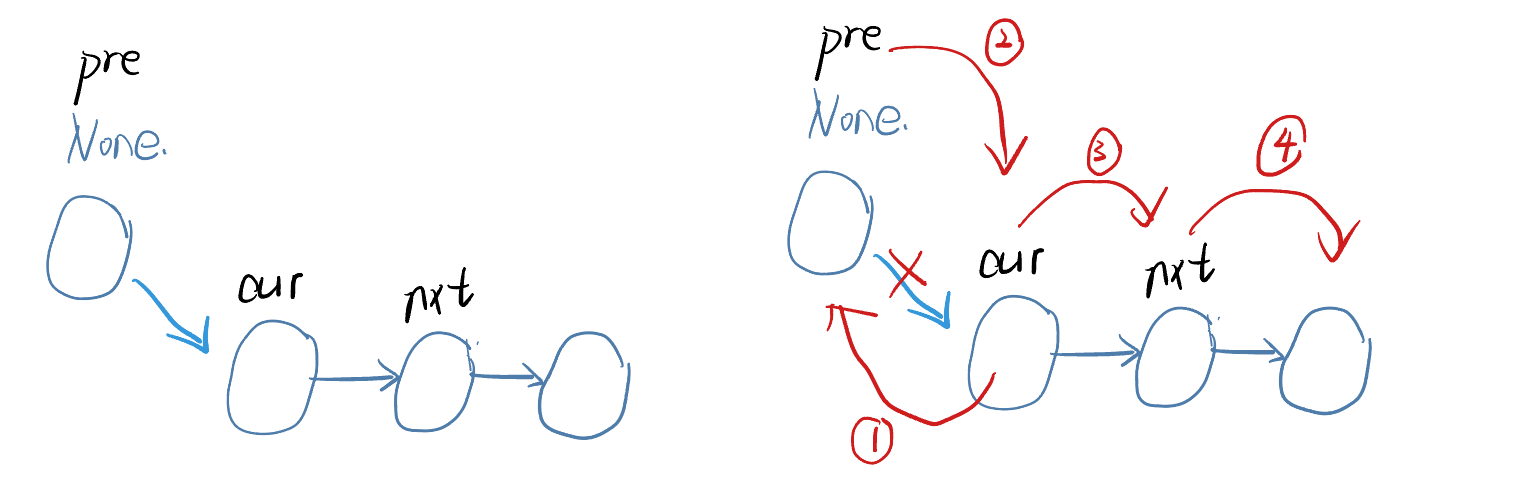 pre
None.
cur
nxt
pre
②
None.
③
④
cur
nxt
①